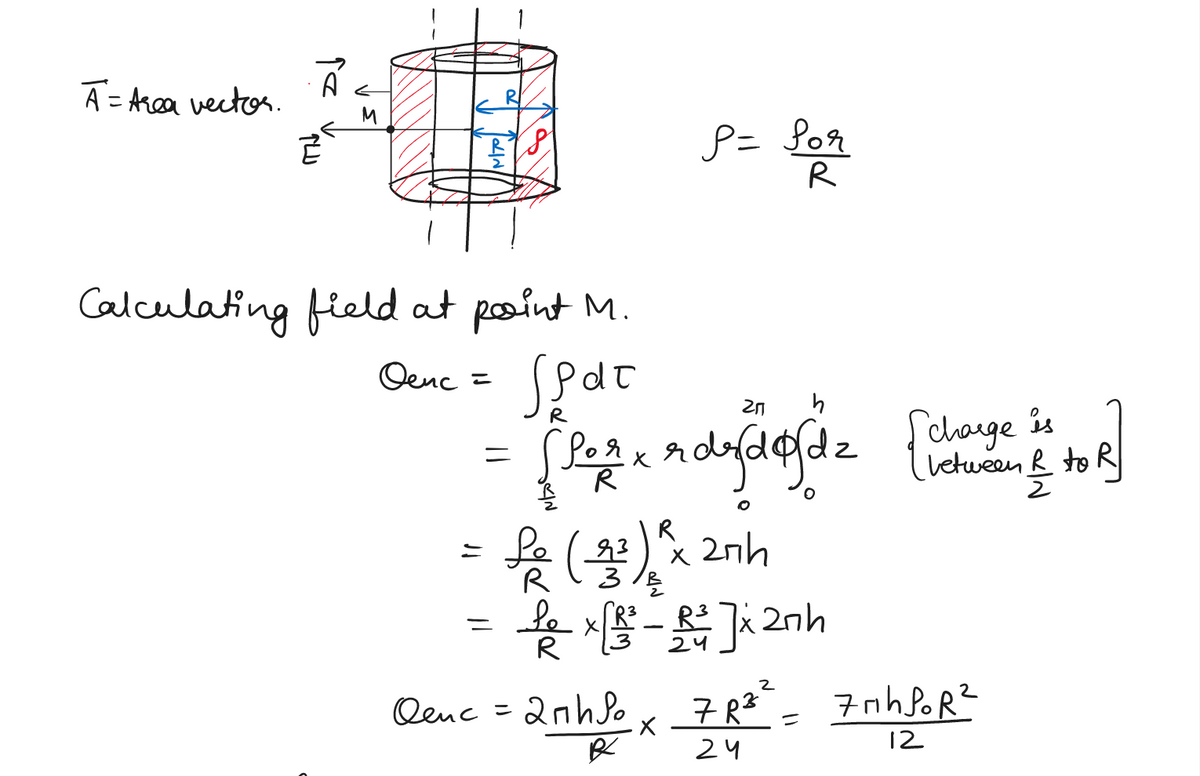 A⃗ = Area vector.
A⃗
M
E⃗
R
R/2
ρ
ρ = ρ₀r/R
Calculating field at point M.
Qenc = ∫ρdτ
= ∫_{R/2}^{R} ρ₀r/R × rdr ∫_{0}^{2π} dϕ ∫_{0}^{h} dz [charge is between R/2 to R]
= ρ₀/R (r³/3)_{R/2}^{R} × 2πh
= ρ₀/R × [R³/3 − R³/24] × 2πh
Qenc = 2πhρ₀/R × 7R³ ²/24 = 7πhρ₀R²/12